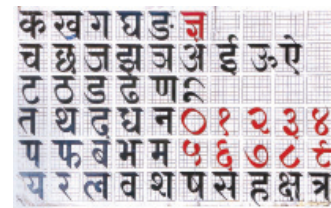 क ख ग घ ङ ज्ञ
च छ ज झ ञ अ ई ऊ ऐ
ट ठ ड ढ ण
त थ द ध न ० १ २ ३ ४
प फ ब भ म ५ ६ ७ ८ ९
य र ल व श ष स ह क्ष त्र